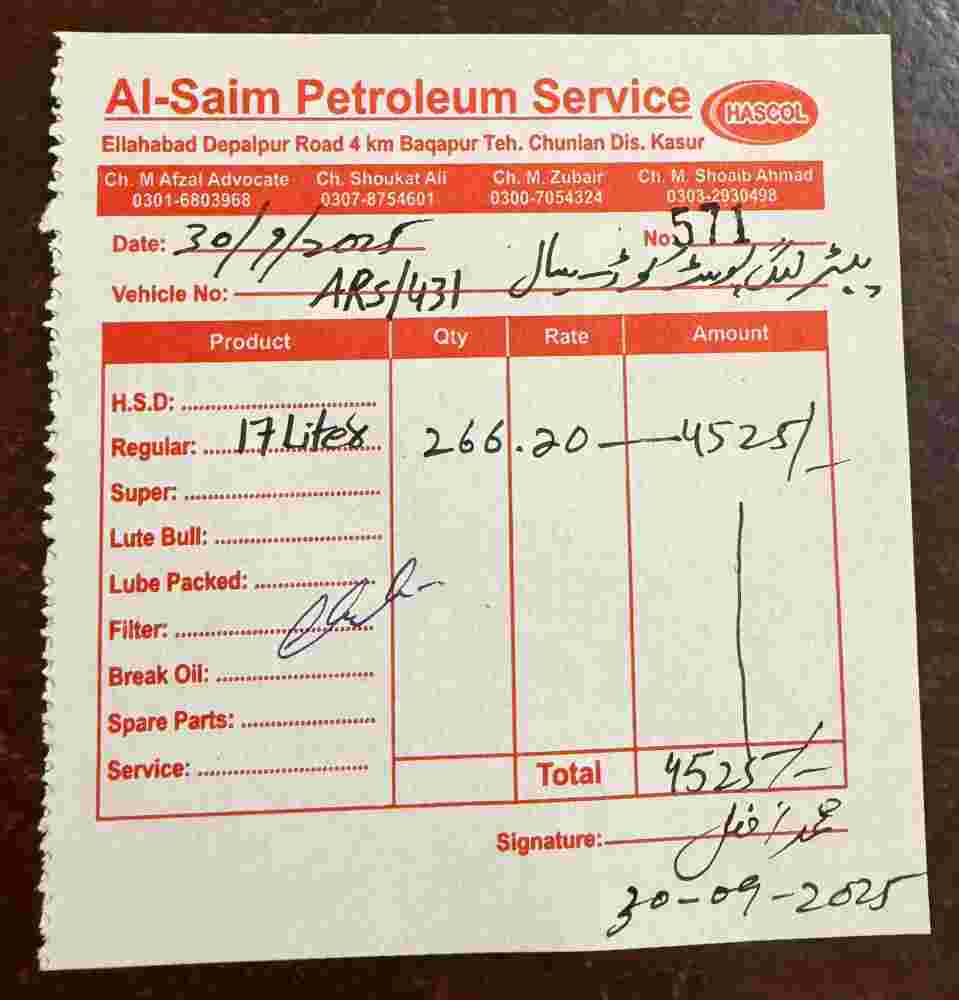 Al-Saim Petroleum Service
HASCOL
Ellahabad Depalpur Road 4 km Baqapur Teh. Chunian Dis. Kasur
Ch. M Afzal Advocate Ch. Shoukat Ali Ch. M. Zubair Ch. M. Shoaib Ahmad
0301-6803968 0307-8754601 0300-7054324 0303-2930498
Date: 30/9/2025 No 571
Vehicle No: ARS/431
Product Qty Rate Amount
H.S.D:
Regular: 17 Liter 266.20 — 4525/-
Super:
Lute Bull:
Lube Packed:
Filter:
Break Oil:
Spare Parts:
Service:
Total 4525/-
Signature: محمد افضل
30-09-2025